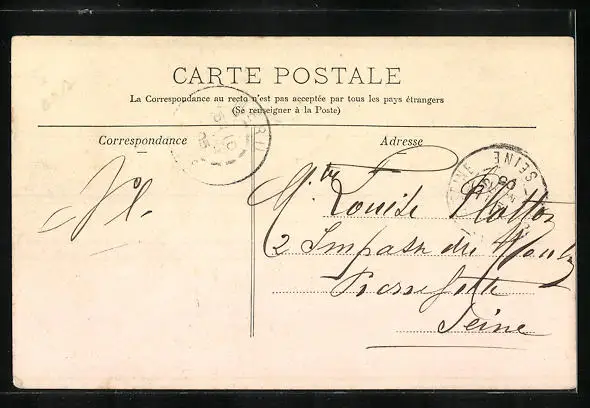 CARTE POSTALE
La Correspondance au recto n'est pas acceptée par tous les pays étrangers
(Se renseigner à la Poste)
Correspondance
Adresse
SEINE
Mlle Louise
2 Impasse du
Pierrefitte
Seine